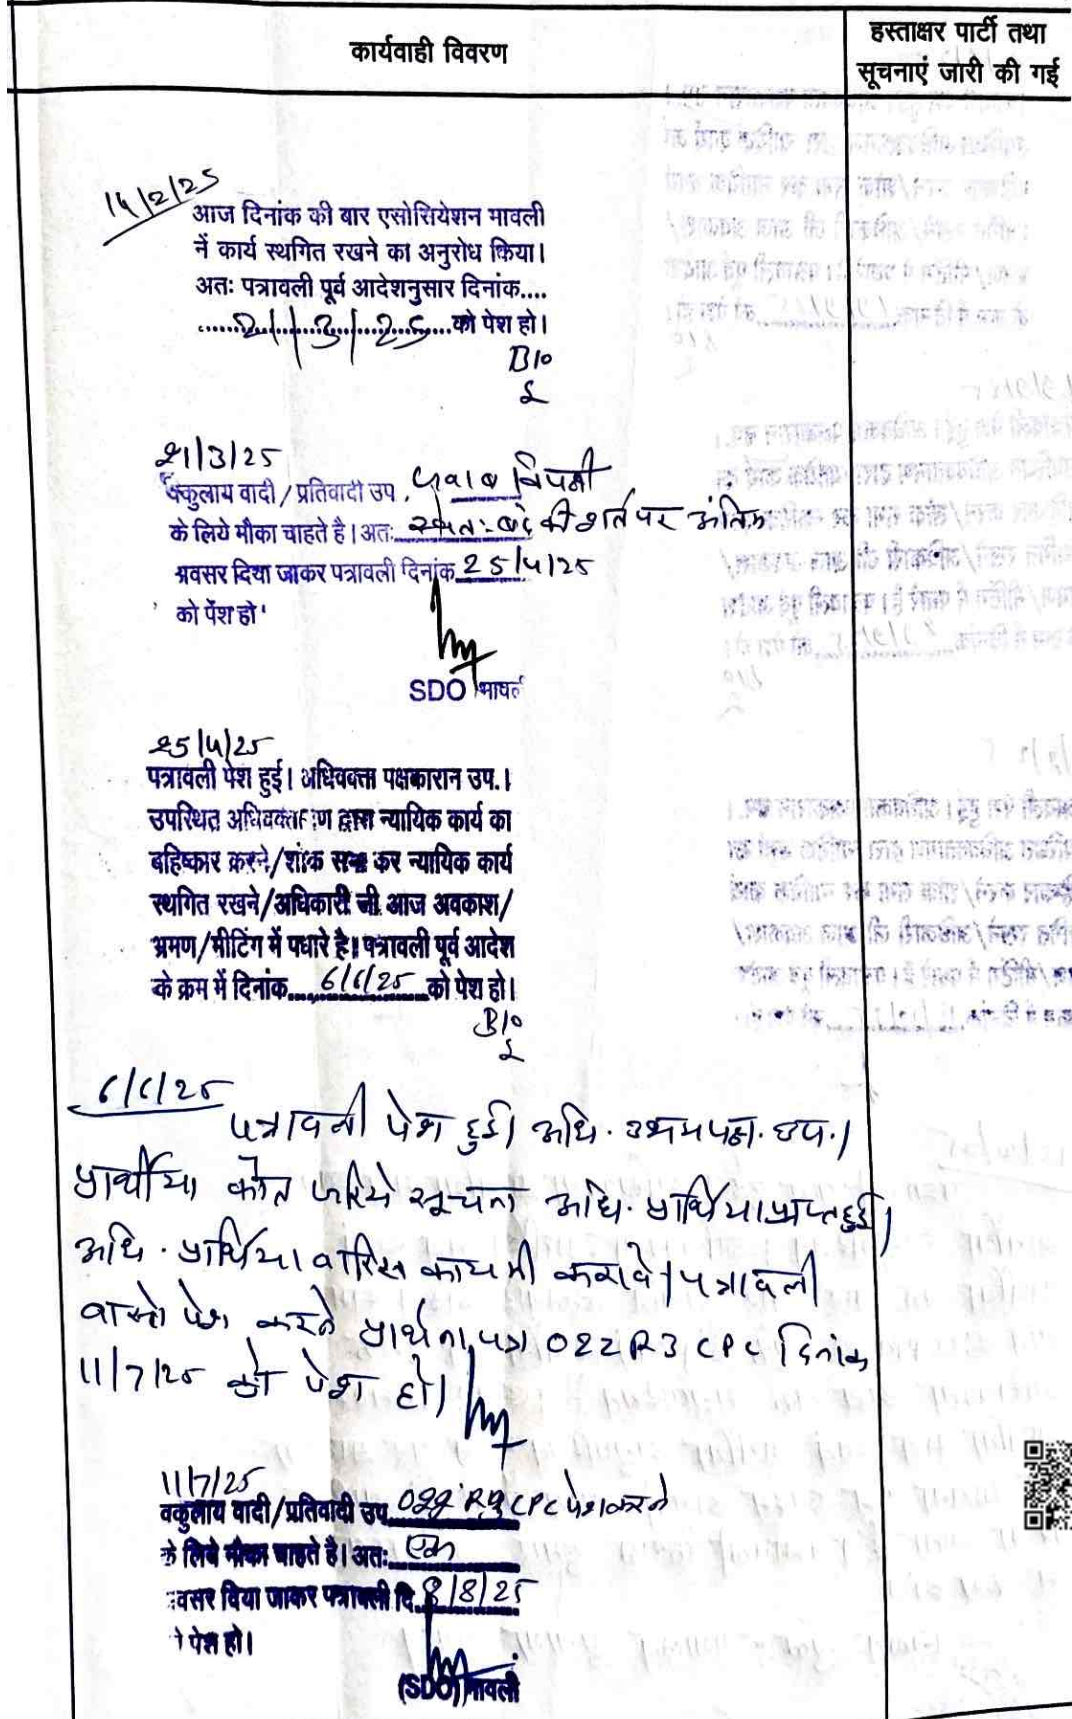 कार्यवाही विवरण
हस्ताक्षर पार्टी तथा
सूचनाएं जारी की गई
14/2/25
आज दिनांक की बार एसोसियेशन मावली
नें कार्य स्थगित रखने का अनुरोध किया।
अतः पत्रावली पूर्व आदेशनुसार दिनांक....
......21/3/25......को पेश हो।
B/o
21/3/25
वकुलाय वादी / प्रतिवादी उप. जवाब विपक्षी
के लिये मौका चाहते है। अतः स्वतः बंद की शर्त पर अंतिम
अवसर दिया जाकर पत्रावली दिनांक 25/4/25
को पेंश हो
SDO मावली
25/4/25
पत्रावली पेश हुई। अधिवक्ता पक्षकारान उप.।
उपस्थित अधिवक्तागण द्वारा न्यायिक कार्य का
बहिष्कार करने/शोक सभा कर न्यायिक कार्य
स्थगित रखने/अधिकारी जी आज अवकाश/
भ्रमण/मीटिंग में पधारे है। पत्रावली पूर्व आदेश
के क्रम में दिनांक....6/6/25....को पेश हो।
B/o
6/6/25
पत्रावली पेश हुई। अधि. उभयपक्ष. उप.।
प्रार्थीया फौत जरिये सूचना अधि. प्रार्थिया प्राप्त हुई।
अधि. प्रार्थिया वारिस कायमी करावे। पत्रावली
वास्ते पेश करने प्रार्थना पत्र O22 R3 CPC दिनांक
11/7/25 को पेश हो।
11/7/25
वकुलाय वादी/प्रतिवादी उप. O22 R3 CPC पेश करने
के लिये मौका चाहते है। अतः एक
अवसर दिया जाकर पत्रावली दि. 8/8/25
को पेश हो।
(SDO) मावली